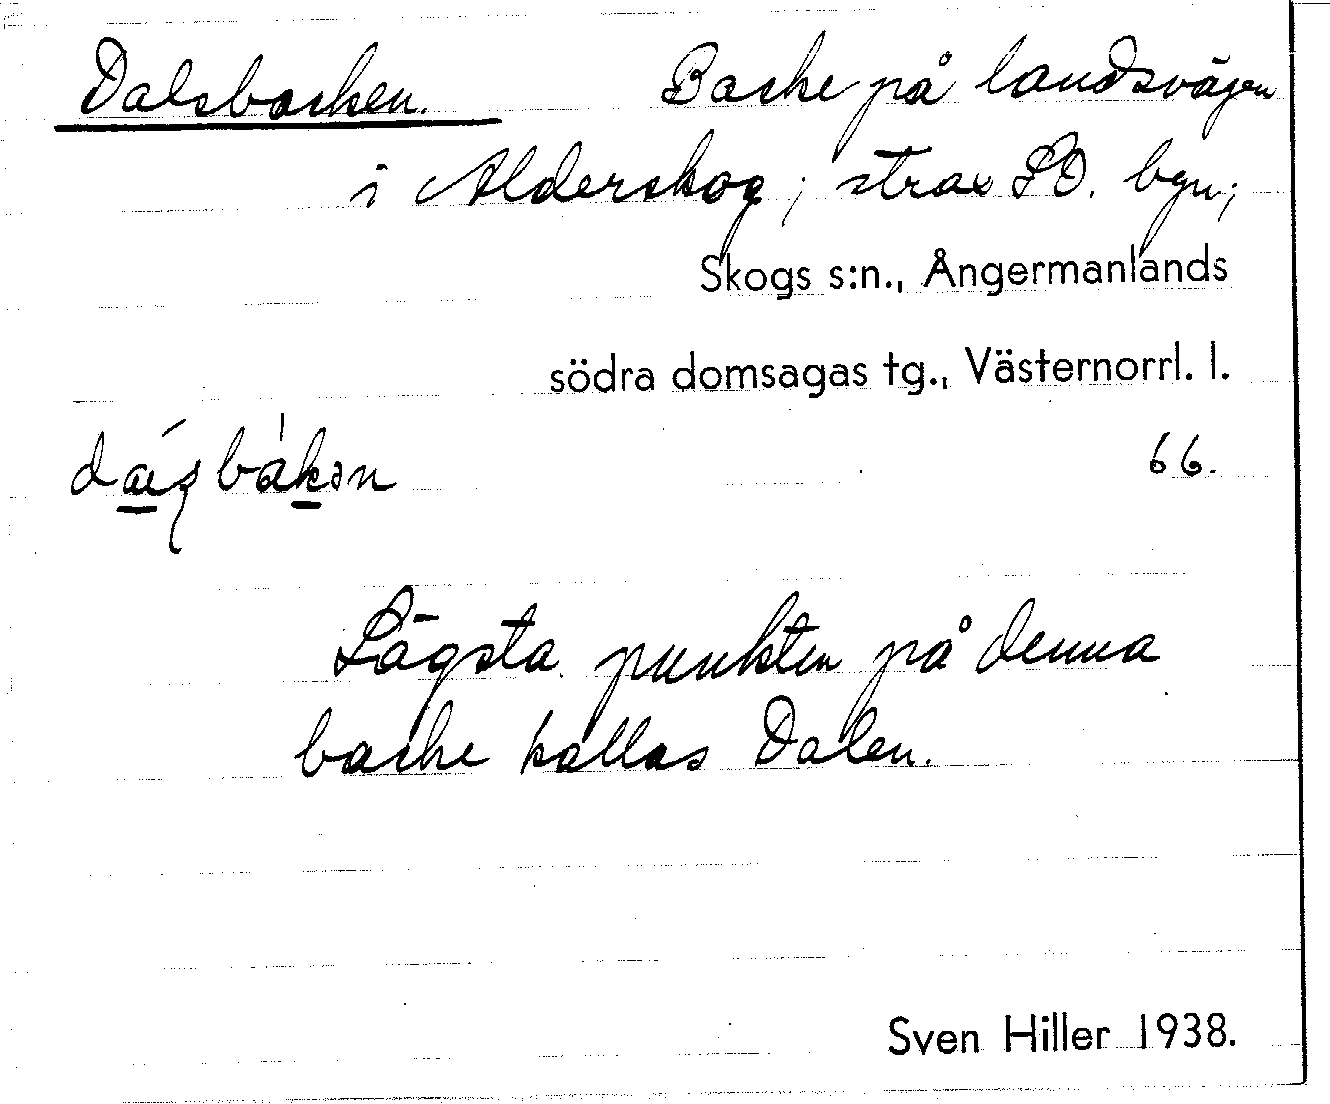 Dalsbacken. Backe på landsvägen
i Alderskog; strax SO. byn;
Skogs s:n., Ångermanlands
södra domsagas tg., Västernorrl. l.
66.
Lägsta punkten på denna
backe kallas Dalen.
Sven Hiller 1938.